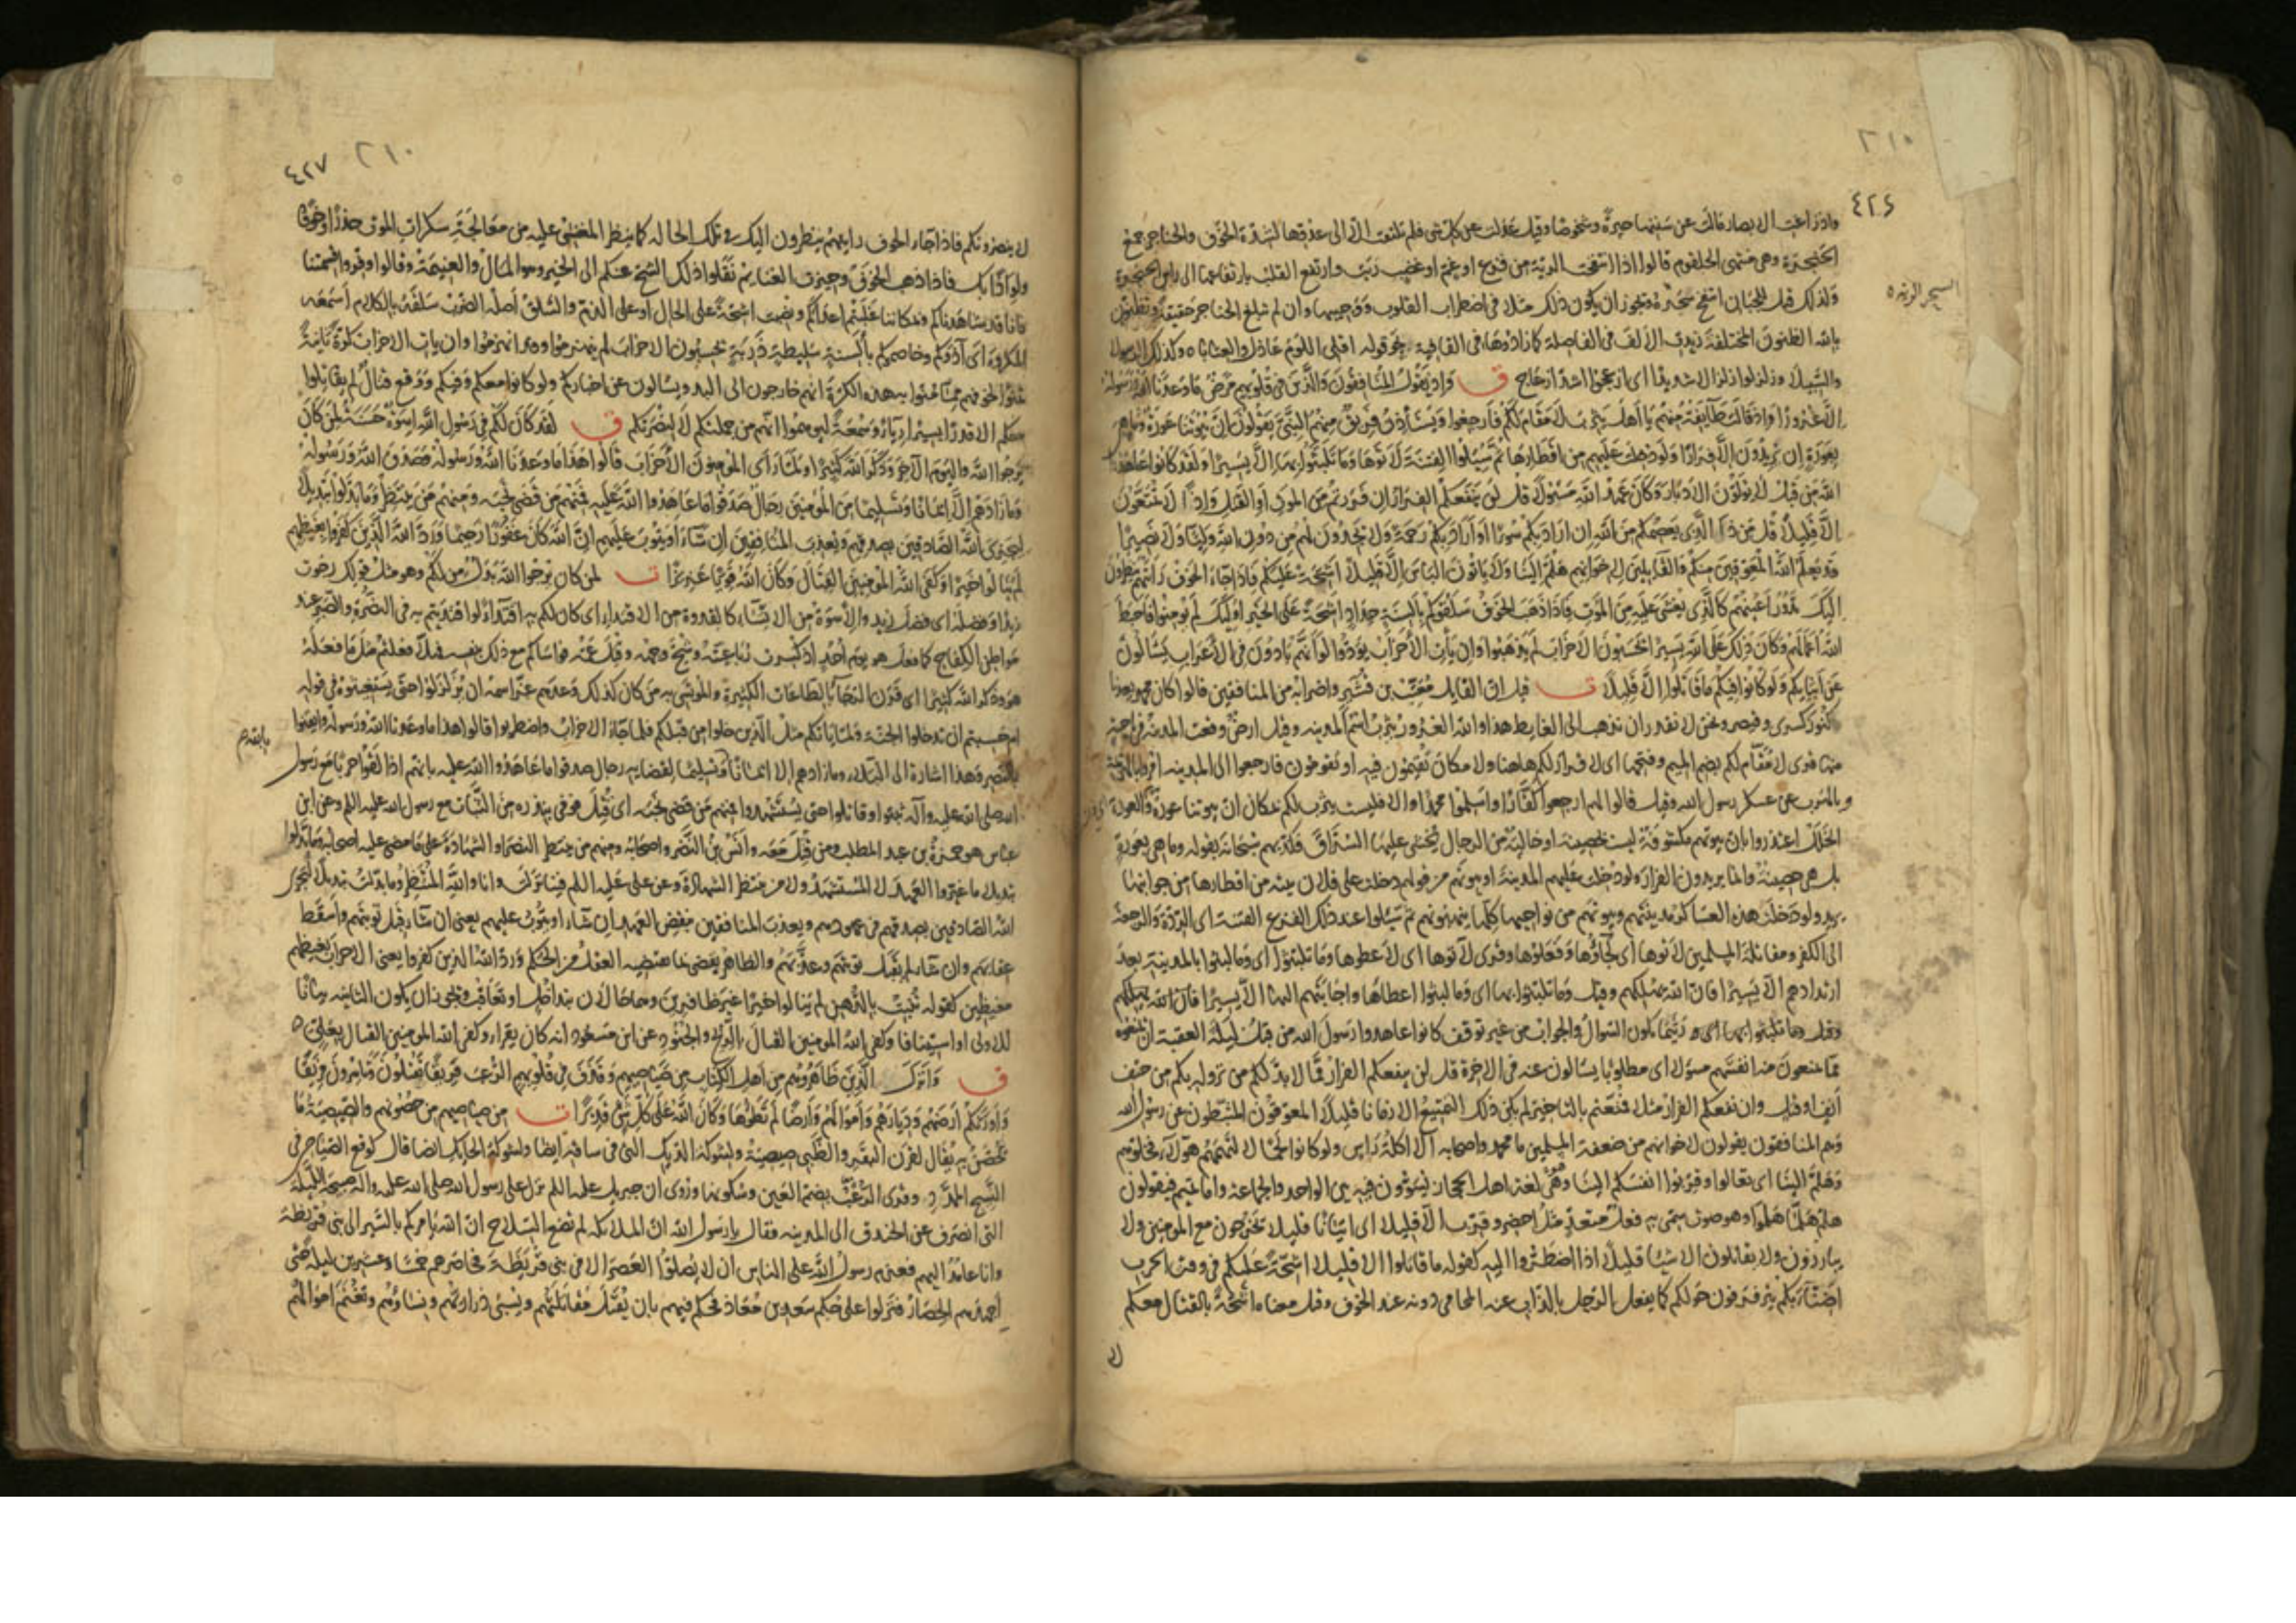 ٤٢٦
٢١٠
واذ زاغت الابصار مالت عن سننها حيرةً وشخوصًا وقيل عدلت عن كل شى فلم تلتفت الا الى عدوّها لشدّة الخوف والحناجر جمع
الحنجرة وهى منتهى الحلقوم قالوا اذا انتفخت الرية من فزع او غمّ او غضب ربت وارتفع القلب بارتفاعها الى راس الحنجرة
السحر الرئه
ولذلك قيل للجبان انتفخ سَحْرُه ويجوز ان يكون ذلك مثلا فى اضطراب القلوب ووجيبها وان لم تبلغ الحناجر حقيقة وتظنّون
بالله الظنون المختلفة زيدت الالف فى الفاصلة كما زادوها فى القافية نحو قوله اقلى اللوم عاذل والعتابا وكذلك الرسولا
والسبيلا وزلزلوا زلزالا شديدا اى ازعجوا اشدّ ازعاج ق وَاِذ يَقُولُ المُنَافِقُونَ وَالَّذينَ فى قُلُوبِهِم مَرَضٌ مَا وَعَدَنَا اللهُ وَرَسُولُهُ
اِلَّا غُرُورًا وَاِذ قَالَت طَآيِفَةٌ مِنهُم يَا اَهلَ يَثرِبَ لَا مَقَامَ لَكُم فَارجِعُوا وَيَستَأذِنُ فَرِيقٌ مِنهُمُ النَّبِىَّ يَقُولُونَ اِنَّ بُيُوتَنَا عَورَةٌ وَمَا هِىَ
بِعَورَةٍ اِن يُرِيدُونَ اِلَّا فِرَارًا وَلَو دُخِلَت عَلَيهِم مِن اَقطَارِهَا ثُمَّ سُئِلُوا الفِتنَةَ لَاَتَوهَا وَمَا تَلَبَّثُوا بِهَا اِلَّا يَسِيرًا وَلَقَد كَانُوا عَاهَدُوا
اللهَ مِن قَبلُ لَا يُوَلُّونَ الاَدبَارَ وَكَانَ عَهدُ اللهِ مَسئُولًا قُل لَن يَنفَعَكُمُ الفِرَارُ اِن فَرَرتُم مِنَ المَوتِ اَوِ القَتلِ وَاِذًا لَا تُمَتَّعُونَ
اِلَّا قَلِيلًا قُل مَن ذَا الَّذِى يَعصِمُكُم مِنَ اللهِ اِن اَرَادَ بِكُم سُوءًا اَو اَرَادَ بِكُم رَحمَةً وَلَا يَجِدُونَ لَهُم مِن دُونِ اللهِ وَلِيًّا وَلَا نَصِيرًا
قَد يَعلَمُ اللهُ المُعَوِّقِينَ مِنكُم وَالقَآيِلِينَ لِاِخوَانِهِم هَلُمَّ اِلَينَا وَلَا يَأتُونَ البَأسَ اِلَّا قَلِيلًا اَشِحَّةً عَلَيكُم فَاِذَا جَآءَ الخَوفُ رَاَيتَهُم يَنظُرُونَ
اِلَيكَ تَدُورُ اَعيُنُهُم كَالَّذِى يُغشَى عَلَيهِ مِنَ المَوتِ فَاِذَا ذَهَبَ الخَوفُ سَلَقُوكُم بِاَلسِنَةٍ حِدَادٍ اَشِحَّةً عَلَى الخَيرِ اُولٰئِكَ لَم يُؤمِنُوا فَاَحبَطَ
اللهُ اَعمَالَهُم وَكَانَ ذَلِكَ عَلَى اللهِ يَسِيرًا يَحسَبُونَ الاَحزَابَ لَم يَذهَبُوا وَاِن يَأتِ الاَحزَابُ يَوَدُّوا لَو اَنَّهُم بَادُونَ فِى الاَعرَابِ يَسئَلُونَ
عَن اَنبَآيِكُم وَلَو كَانُوا فِيكُم مَا قَاتَلُوا اِلَّا قَلِيلًا ت قيل ان القايل مُعَتِّب بن قُشَير واضرابه من المنافقين قالوا كان محمد يعدنا
كنوز كسرى وقيصر ونحن لا نقدر ان نذهب الى الغايط هذا والله الغرور يثرب اسم المدينه وقيل ارض وقعت المدينة فى ناحية
منها قرى لا مُقام لكم بضم الميم وفتحها اى لا قرار لكم هاهنا ولا مكان تقيمون فيه او تقومون فارجعوا الى المدينه امروهم بالهرب
عن عسكر رسول الله وقيل قالوا لهم ارجعوا كفّارًا واسلموا محمدًا والا فليست يثرب لكم بمكان ان بيوتنا عورة والعورة
الخلل اعتذروا بان بيوتهم مكشوفة ليست بحصينة او خالية من الرجال يُخشى عليها السُّرّاق فكذّبهم سبحانه بقوله وما هى بعورة
بل هى حصينة وانما يريدون الفرار ولو دخلت عليهم المدينة او بيوتهم من قولهم دخلت على فلان بيته من اقطارها من جوانبها
يريد ولو دخلت هذه العساكر مدينتهم وبيوتهم من نواحيها كلّها ينهبونهم ثم سُئلوا عند ذلك الفزع الفتنة اى الردّة والرجعة
الى الكفر ومقاتلة المسلمين لاتوها اى لجآؤها وفعلوها وقرى لآتوها اى لاعطوها وما تلبّثوا اى وما لبثوا بالمدينة بعد
ارتدادهم الا يسيرًا فان الله يهلكهم وقيل وما تلبّثوا بها اى وما لبثوا اعطاها واجابتهم اليها الا يسيرًا
عاهدوا رسول الله من قبل ليلة العقبة ان يمنعوه
ممّا يمنعون منه انفسهم مسئولا اى مطلوبًا يسألون عنه فى الاخرة قل لن ينفعكم الفرار ممّا لا بدّ لكم من نزوله بكم من حتف
انف او قتل وان نفعكم الفرار مثلا فمُتّعتم بالتاخير لم يكن ذلك التمتيع الا زمانا قليلا المعوّقون المثبّطون عن رسول الله
وهم المنافقون يقولون لاخوانهم من ضعفة المسلمين ما محمد واصحابه الا اكلة راس ولو كانوا لحمًا لالتهمهم هولاء فخلّوهم
وهلمّ الينا اى تعالوا وقرّبوا انفسكم الينا وهى لغة اهل الحجاز يسوّون فيه بين الواحد والجماعة واما تميم فيقولون
هلمّ هلمّا هلمّوا وهو صوت سمى به فعل متعدّ مثل احضر وقرّب الا قليلا اى اتيانا قليلا يخرجون مع المومنين ولا
يبارزون ولا يقاتلون الا شيئا قليلًا اذا اضطُرّوا اليه كقوله ما قاتلوا الا قليلا اشحّة عليكم فى وقت الحرب
اضنّآء بكم يترفرفون حولكم كما يفعل الرجل بالذّابّ عنه المحامى دونه عند الخوف وقيل معناه اشحّة بالقتال معكم
لا
٤٢٧
٢١٠
لا ينصرونكم فاذا جآء الخوف رايتهم ينظرون اليك فى تلك الحالة كما ينظر المغشىّ عليه من معالجة سكرات الموت حذرًا وخوفًا
ولواذًا بك فاذا ذهب الخوف وحيزت الغنايم نقلوا ذلك الشحّ عنكم الى الخير وهو المال والغنيمة وقالوا وفّروا قسمتنا
فانا قد شاهدناكم وبمكاننا غلبتم اعداءكم ونصب اشحّة على الحال او على الذم والسلق اصله الضرب سلقه بالكلام اسمعه
المكروه اى آذوكم وخاصموكم بألسنة سليطة ذربة يحسبون الاحزاب لم ينهزموا وقد انهزموا وان يات الاحزاب كرّة ثانية
تمنّوا لخوفهم ممّا مُنُوا به هذه الكرّة انهم خارجون الى البدو ويسالون عن اخباركم ولو كانوا معكم وفيكم ووقع قتال لم يقاتلوا
معكم الا قدرًا يسيرا ريآء وسمعة ليوهموا انهم من جملتكم لا لنصرتكم ق لَقَد كَانَ لَكُم فِى رَسُولِ اللهِ اُسوَةٌ حَسَنَةٌ لِمَن كَانَ
يَرجُوا اللهَ وَاليَومَ الآخِرَ وَذَكَرَ اللهَ كَثِيرًا وَلَمَّا رَاَى المُؤمِنُونَ الاَحزَابَ قَالُوا هَذَا مَا وَعَدَنَا اللهُ وَرَسُولُهُ وَصَدَقَ اللهُ وَرَسُولُهُ
وَمَا زَادَهُم اِلَّا اِيمَانًا وَتَسلِيمًا مِنَ المُؤمِنِينَ رِجَالٌ صَدَقُوا مَا عَاهَدُوا اللهَ عَلَيهِ فَمِنهُم مَن قَضَى نَحبَهُ وَمِنهُم مَن يَنتَظِرُ وَمَا بَدَّلُوا تَبدِيلًا
لِيَجزِىَ اللهُ الصَّادِقِينَ بِصِدقِهِم وَيُعَذِّبَ المُنَافِقِينَ اِن شَآءَ اَو يَتُوبَ عَلَيهِم اِنَّ اللهَ كَانَ غَفُورًا رَحِيمًا وَرَدَّ اللهُ الَّذِينَ كَفَرُوا بِغَيظِهِم
لَم يَنَالُوا خَيرًا وَكَفَى اللهُ المُؤمِنِينَ القِتَالَ وَكَانَ اللهُ قَوِيًّا عَزِيزًا ت لمن كان يرجوا الله بدل من لكم وهو مثل قولك رجوت
زيدًا وفضله اى فضل زيد والاسوة من الايتسآء كالقدوة من الاقتداء اى كان لكم به اقتدآء لو اقتديتم به فى النصرة والصبر عند
مواطن الكفاح كما فعل هو يوم اُحُد اذ كسرت رباعيته وشُجّ وجهه وقتل عمّه فواساكم مع ذلك بنفسه فهلّا فعلتم مثل ما فعله
هو وذكر الله كثيرًا اى قرن الرجآء بالطاعات الكثيرة والمؤتسى به من كان كذلك وعدهم عزّ اسمه ان يُزَلزلوا حتى يستغيثوه فى قوله
ام حسبتم ان تدخلوا الجنّة ولمّا ياتكم مثل الذين خلوا من قبلكم فلما جآء الاحزاب واضطربوا قالوا هذا ما وعدنا الله ورسوله وايقنوا
بالنصر وهذا اشارة الى البلاء وما زادهم الا ايمانًا بالله وتسليمًا لقضايه رجال صدقوا ما عاهدوا الله عليه بانهم اذا لقوا حربًا مع رسول
الله صلى الله عليه وآله ثبتوا وقاتلوا حتى يُستشهدوا فمنهم من قضى نحبه اى قُتل فوفى بنذره من الثبات مع رسول الله عليه السلم وعن ابن
عباس هو حمزة بن عبد المطلب ومن قُتل معه وانس بن النضر واصحابه ومنهم من ينتظر النصر او الشهادة على ما مضى عليه اصحابه وما بدّلوا
تبديلا ما غيّروا العهد لا المستشهد ولا من ينتظر الشهادة وعن على عليه السلم فينا نزلت وانا والله المنتظر وما بدّلت تبديلًا ليجزى
الله الصادقين بصدقهم فى عهودهم ويعذب المنافقين بنقض العهد ان شآء او يتوب عليهم يعنى ان شآء قبل توبتهم واسقط
عقابهم وان شآء لم يقبل توبتهم وعذّبهم والظاهر يقضى بما يقتضيه العقل من الحكم وردّ الله الذين كفروا يعنى الاحزاب بغيظهم
مغيظين كقوله تنبت بالدّهن لم ينالوا خيرًا غير ظافرين وهما حالان بتداخل او تعاقب ويجوز ان يكون الثانيه بيانًا
للاولى او استينافا وكفى الله المومنين القتال بالريح والجنود وعن ابن مسعود انه كان يقراء وكفى الله المومنين القتال بعلى
ق وَاَنزَلَ الَّذِينَ ظَاهَرُوهُم مِن اَهلِ الكِتَابِ مِن صَيَاصِيهِم وَقَذَفَ فِى قُلُوبِهِمُ الرُّعبَ فَرِيقًا تَقتُلُونَ وَتَأسِرُونَ فَرِيقًا
وَاَورَثَكُم اَرضَهُم وَدِيَارَهُم وَاَموَالَهُم وَاَرضًا لَم تَطَئُوهَا وَكَانَ اللهُ عَلَى كُلِّ شَىءٍ قَدِيرًا ت من صياصيهم من حصونهم والصيصية ما
تحصّن به يقال لقرن البقر والظبى صيصية ولشوكة الديك التى فى ساقه ايضا ولشوكة الحايك ايضا قال كوقع الصياصى فى
النسيج الممدّد وقرى الرُّعُب بضم العين وسكونها وروى ان جبريل عليه السلم نزل على رسول الله صلى الله عليه واله صبيحة الليلة
التى انصرف عن الخندق الى المدينه فقال يا رسول الله ان الملائكة لم تضع السلاح ان الله يامركم بالسير الى بنى قريظة
وانا عامد اليهم فعزم رسول الله على الناس ان لا يصلوا العصر الا فى بنى قُريظة فحاصرهم خمسًا وعشرين ليلة حتى
اجهدهم الحصار فنزلوا على حكم سعد بن معاذ فحكم فيهم بان يُقتل مقاتلتهم ويُسبى ذراريهم ونساؤهم وتغنم اموالهم